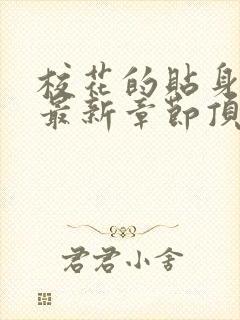 校花的貼身
最新章節頂
君君小舍